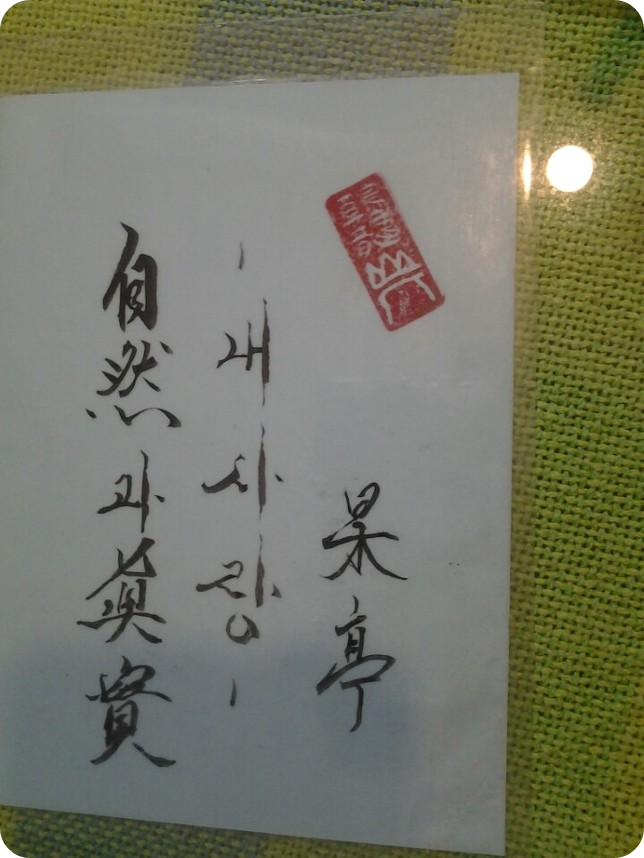 自然과 眞實
- 내 사랑 -
杲亭